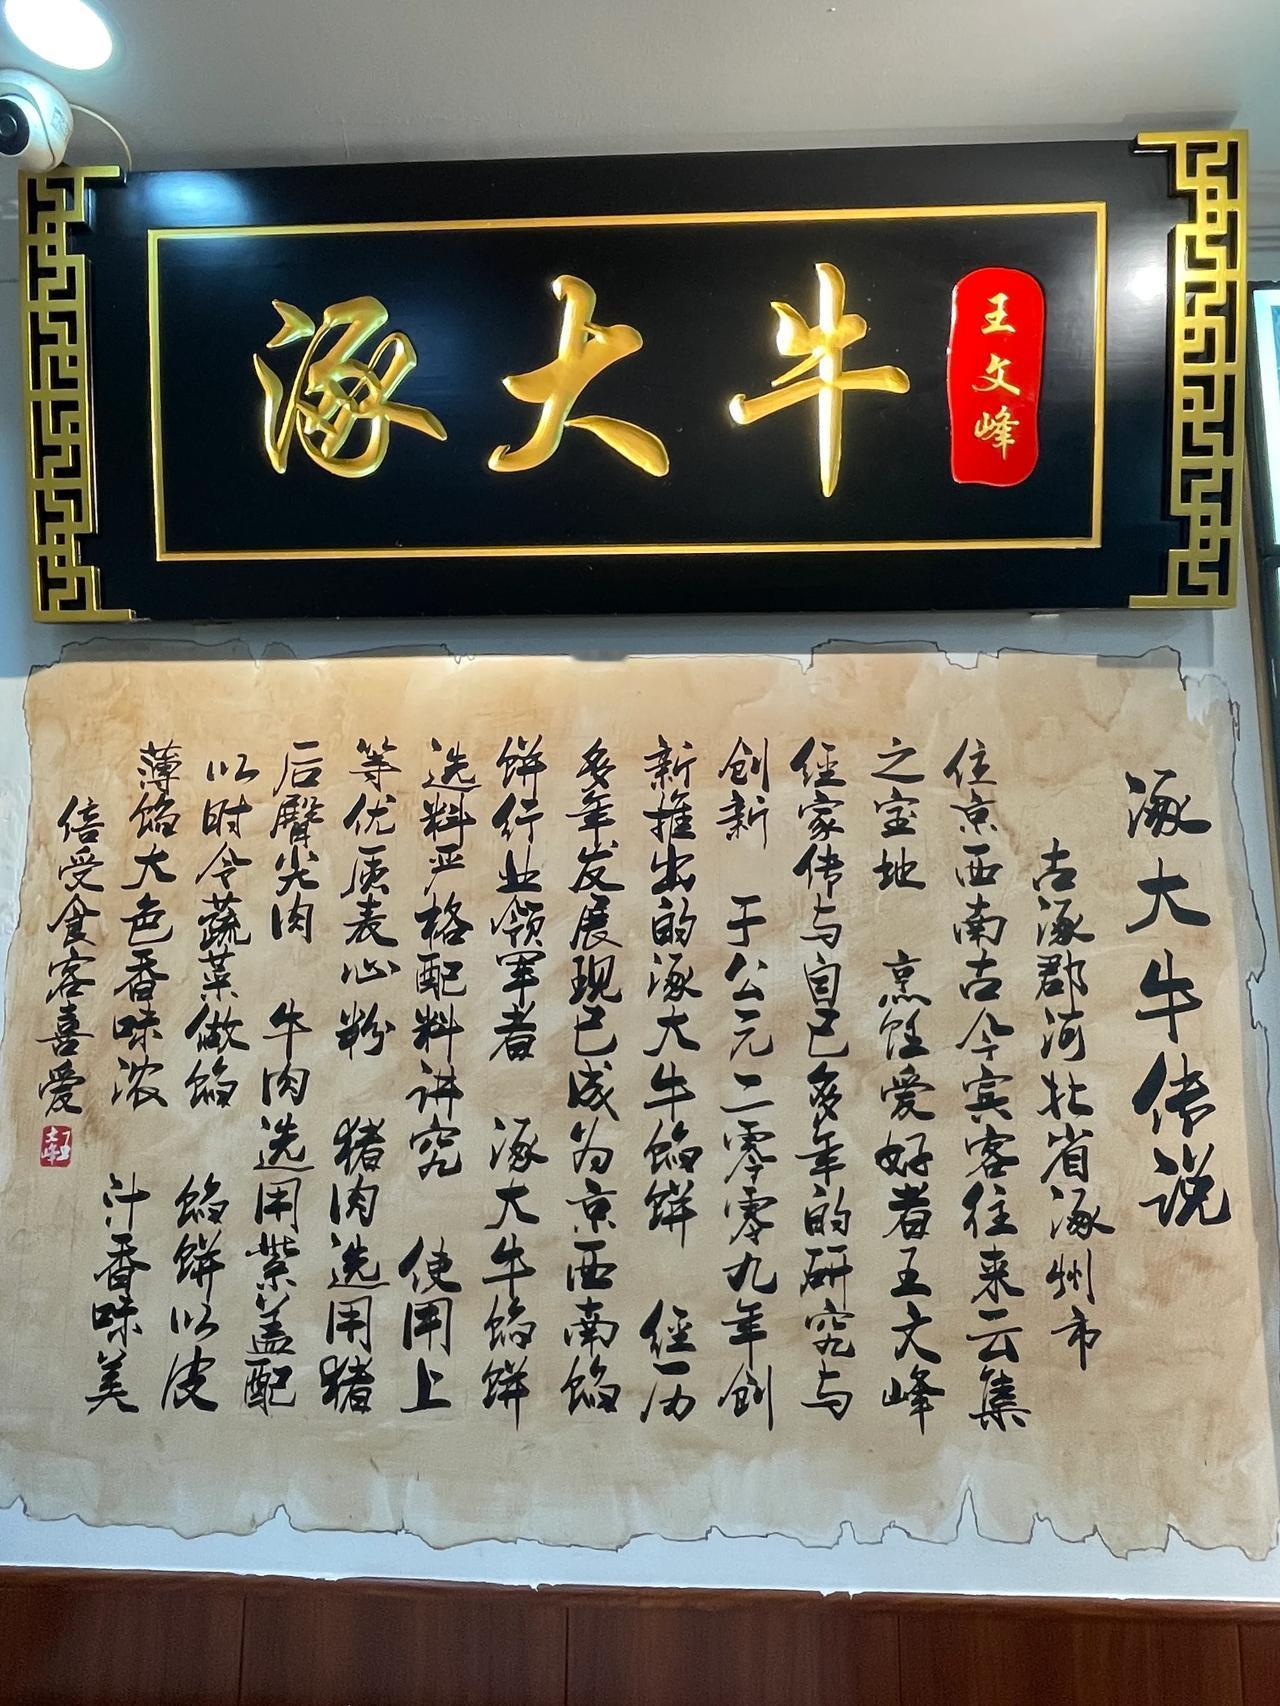 涿大牛
王文峰
涿大牛传说
古涿郡河北省涿州市
位京西南古今宾客往来云集
之宝地 烹饪爱好者王文峰
经家传与自己多年的研究与
创新 于公元二零零九年创
新推出的涿大牛馅饼 经历
多年发展现已成为京西南馅
饼行业领军者 涿大牛馅饼
选料严格配料讲究 使用上
等优质麦心粉 猪肉选用猪
后臀尖肉 牛肉选用紫盖配
以时令蔬菜做馅 馅饼以皮
薄馅大色香味浓 汁香味美
倍受食客喜爱